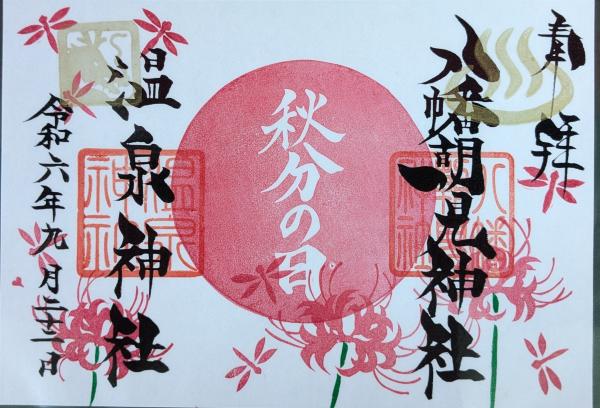 奉拝
八幡朝見神社
秋分の日
温泉神社
令和六年九月二十二日
温泉神社